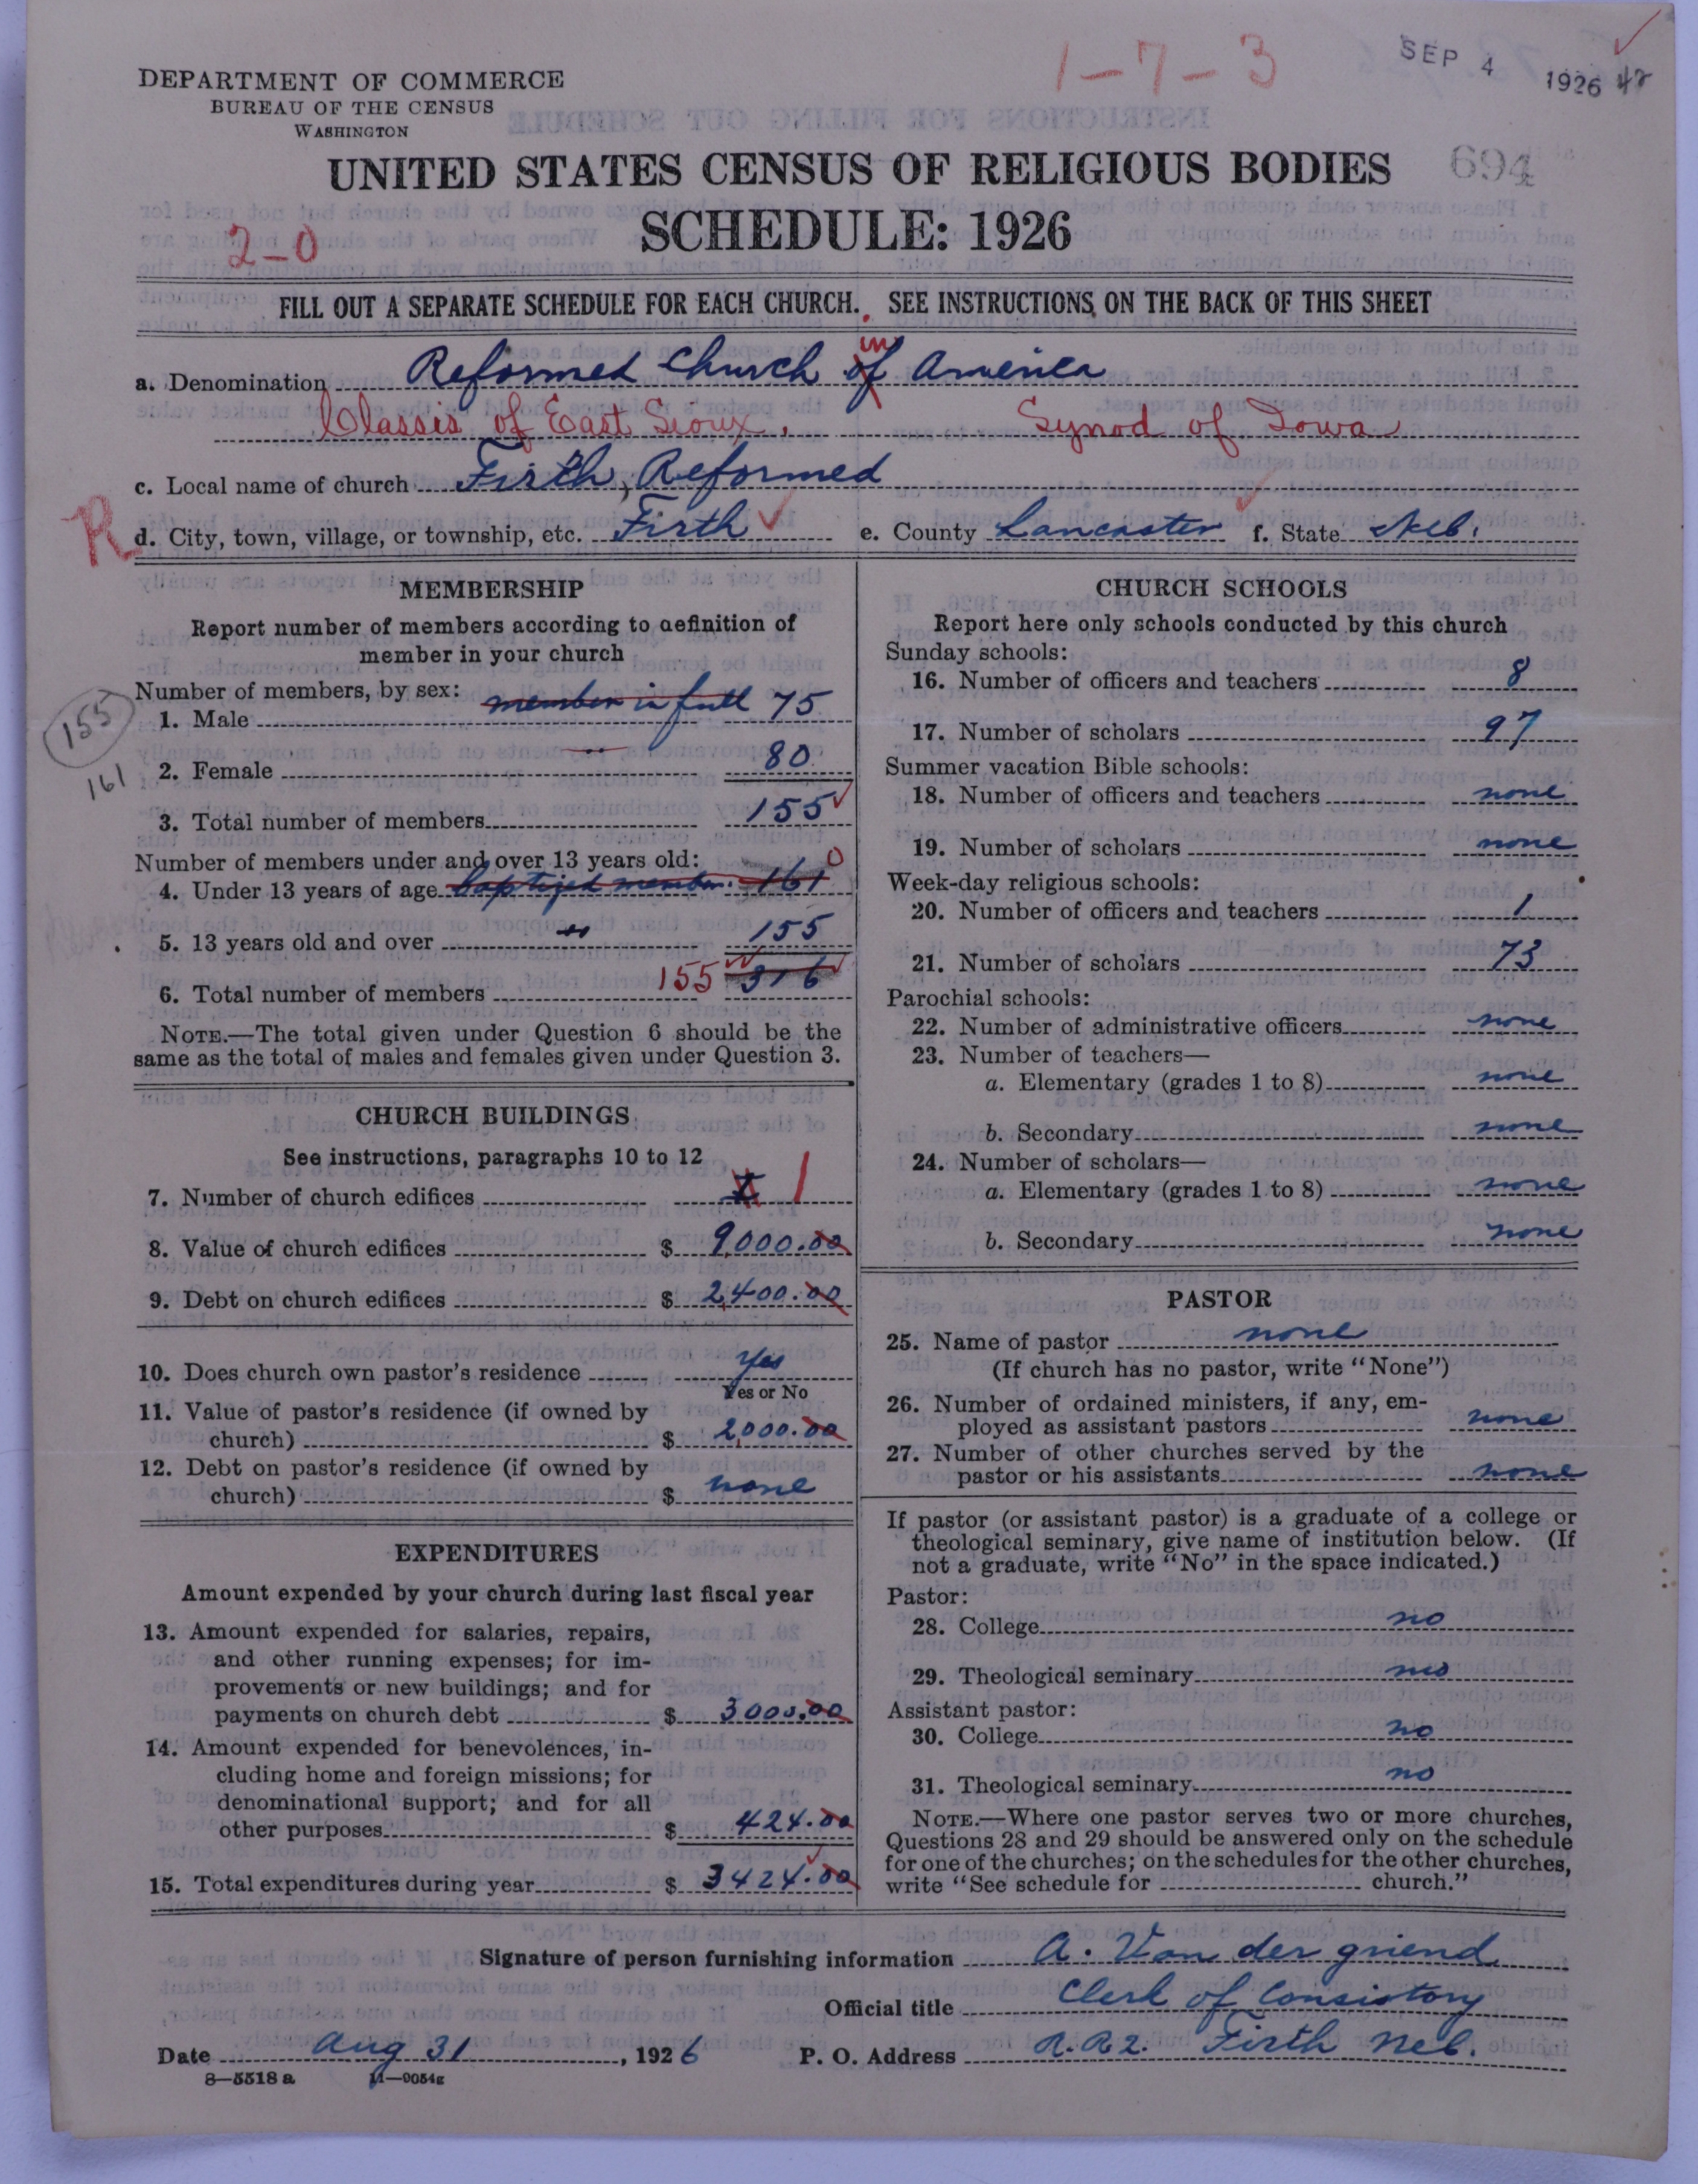 1-7-3
SEP 4 1926
DEPARTMENT OF COMMERCE
BUREAU OF THE CENSUS
WASHINGTON
UNITED STATES CENSUS OF RELIGIOUS BODIES
694
SCHEDULE: 1926
2-0
FILL OUT A SEPARATE SCHEDULE FOR EACH CHURCH. SEE INSTRUCTIONS ON THE BACK OF THIS SHEET
in
a. Denomination Reformed Church of America
Classis of East Sioux. Synod of Iowa
c. Local name of church Firth, Reformed
R
d. City, town, village, or township, etc. Firth e. County Lancaster f. State Neb.
MEMBERSHIP
Report number of members according to definition of
member in your church
Number of members, by sex:
155
1. Male member in full 75
161
2. Female 80
3. Total number of members 155
Number of members under and over 13 years old:
4. Under 13 years of age baptized member. 161 0
5. 13 years old and over 155
6. Total number of members 155 316
NOTE.—The total given under Question 6 should be the
same as the total of males and females given under Question 3.
CHURCH BUILDINGS
See instructions, paragraphs 10 to 12
7. Number of church edifices 1
8. Value of church edifices $ 9,000.00
9. Debt on church edifices $ 2,400.00
10. Does church own pastor's residence Yes
Yes or No
11. Value of pastor's residence (if owned by
church) $ 2,000.00
12. Debt on pastor's residence (if owned by
church) $ none
EXPENDITURES
Amount expended by your church during last fiscal year
13. Amount expended for salaries, repairs,
and other running expenses; for im-
provements or new buildings; and for
payments on church debt $ 3000.00
14. Amount expended for benevolences, in-
cluding home and foreign missions; for
denominational support; and for all
other purposes $ 424.00
15. Total expenditures during year $ 3424.00
CHURCH SCHOOLS
Report here only schools conducted by this church
Sunday schools:
16. Number of officers and teachers 8
17. Number of scholars 97
Summer vacation Bible schools:
18. Number of officers and teachers none
19. Number of scholars none
Week-day religious schools:
20. Number of officers and teachers 1
21. Number of scholars 73
Parochial schools:
22. Number of administrative officers none
23. Number of teachers—
a. Elementary (grades 1 to 8) none
b. Secondary none
24. Number of scholars—
a. Elementary (grades 1 to 8) none
b. Secondary none
PASTOR
25. Name of pastor none
(If church has no pastor, write "None")
26. Number of ordained ministers, if any, em-
ployed as assistant pastors none
27. Number of other churches served by the
pastor or his assistants none
If pastor (or assistant pastor) is a graduate of a college or
theological seminary, give name of institution below. (If
not a graduate, write "No" in the space indicated.)
Pastor:
28. College no
29. Theological seminary no
Assistant pastor:
30. College no
31. Theological seminary no
NOTE.—Where one pastor serves two or more churches,
Questions 28 and 29 should be answered only on the schedule
for one of the churches; on the schedules for the other churches,
write "See schedule for church."
Signature of person furnishing information A. Van der griend
Official title Clerk of Consistory
Date Aug 31, 1926 P. O. Address R.R2. Firth Neb.
8—5518 a 11—9054g